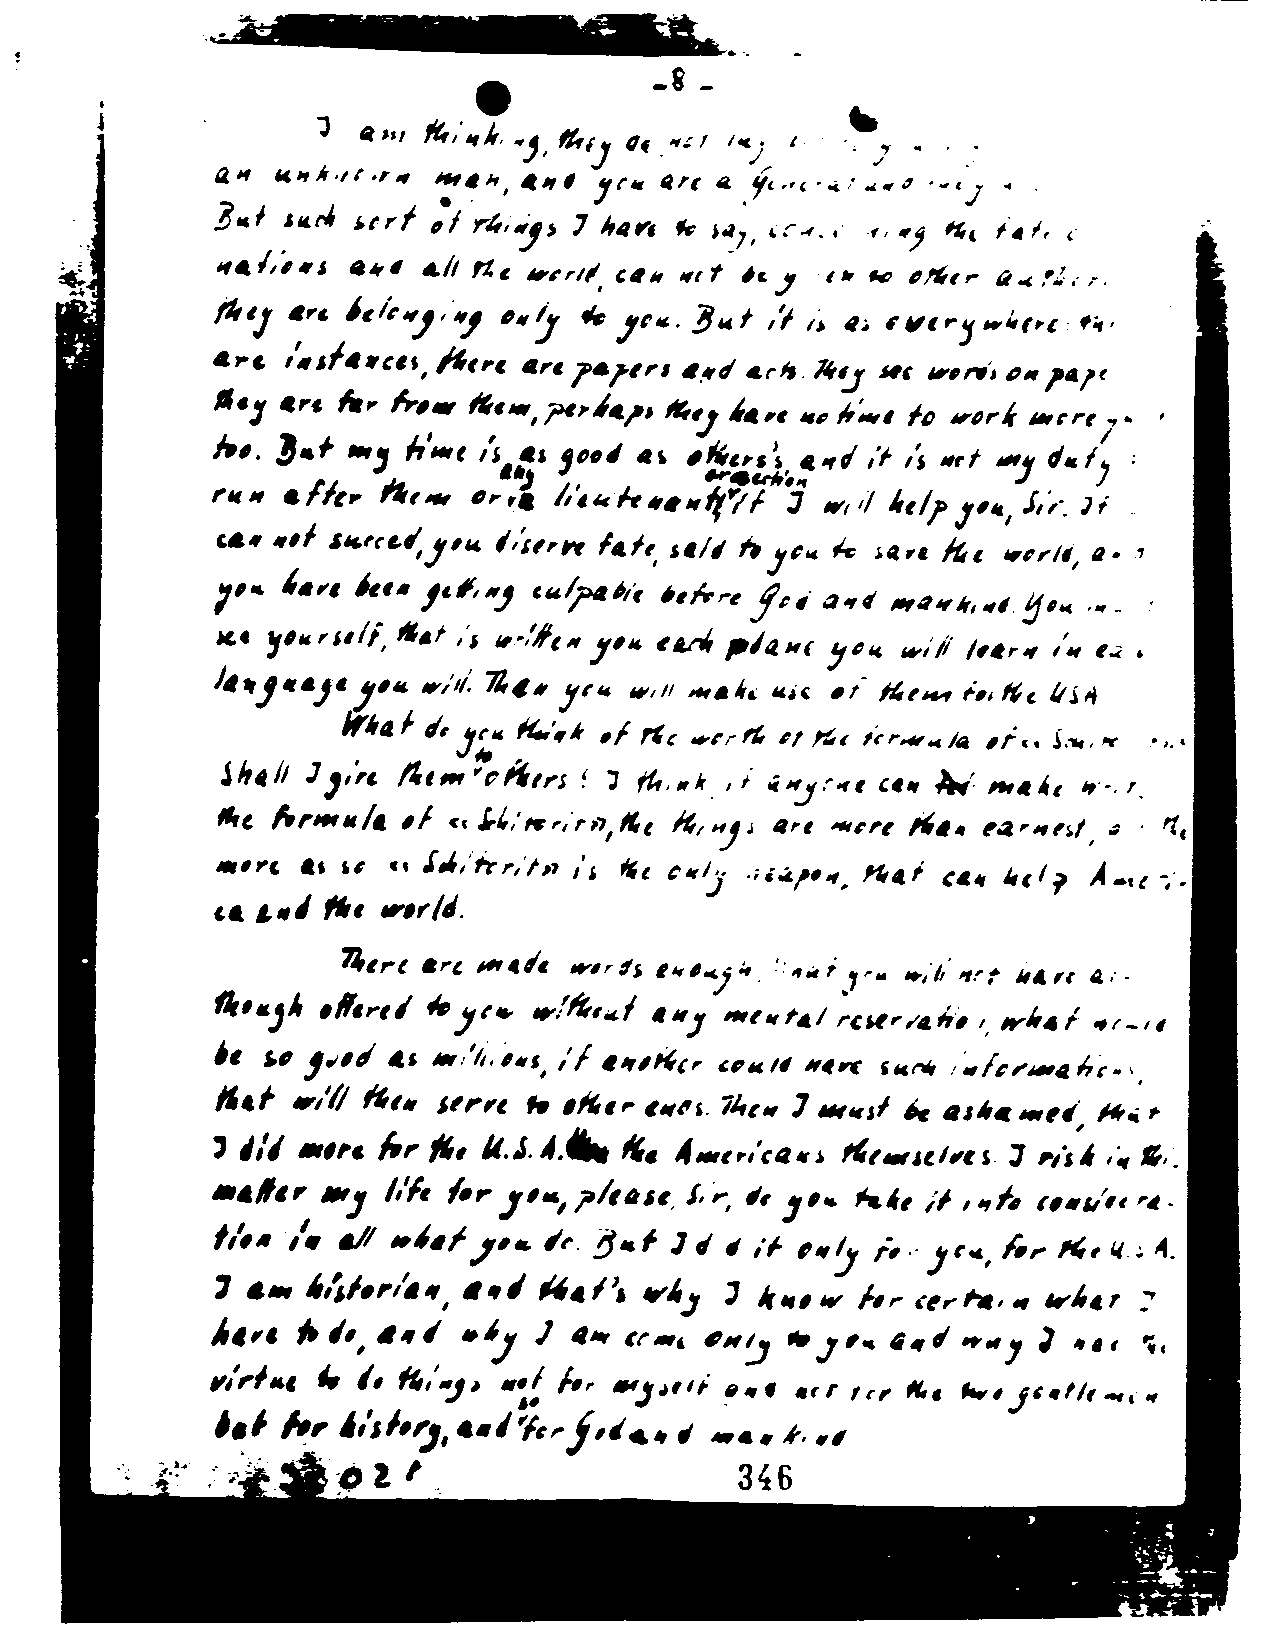 -8-
I am thinking, they do not say
an unknown man, and you are a General and
But such sort of things I have to say, concerning the fate
nations and all the world, can not be given to other
they are belonging only to you. But it is as everywhere
are instances, there are papers and acts. They see words on pape
they are far from them, perhaps they have no time to work more
too. But my time is as good as others's, and it is not my duty
any or action
run after them or a lieutenant, if I will help you, Sir. If
can not surced, you diserve fate, said to you to save the world,
you have been getting culpable before God and mankind. You
see yourself, that is written you each plane you will learn in
language you will. Than you will make use of them for the USA
What do you think of the worth of the formula of
Shall I give them to others? I think, if anyone can make
the formula of «Schitorit», the things are more than earnest, the
more as so «Schitorit» is the only weapon, that can help Ameri-
ca and the world.
There are made words enough, that you will not have
though offered to you without any mental reservation, what
be so good as millions, if another could have such informations,
that will then serve to other ends. Then I must be ashamed, that
I did more for the U.S.A. than the Americans themselves. I risk in this
matter my life for you, please, Sir, do you take it into considera-
tion in all what you do. But I did it only for you, for the U.S.A.
I am historian, and that's why I know for certain what I
have to do, and why I am come only to you and why I
virtue to do things not for myself and not for the two gentlemen
but for history, and so for God and mankind
346